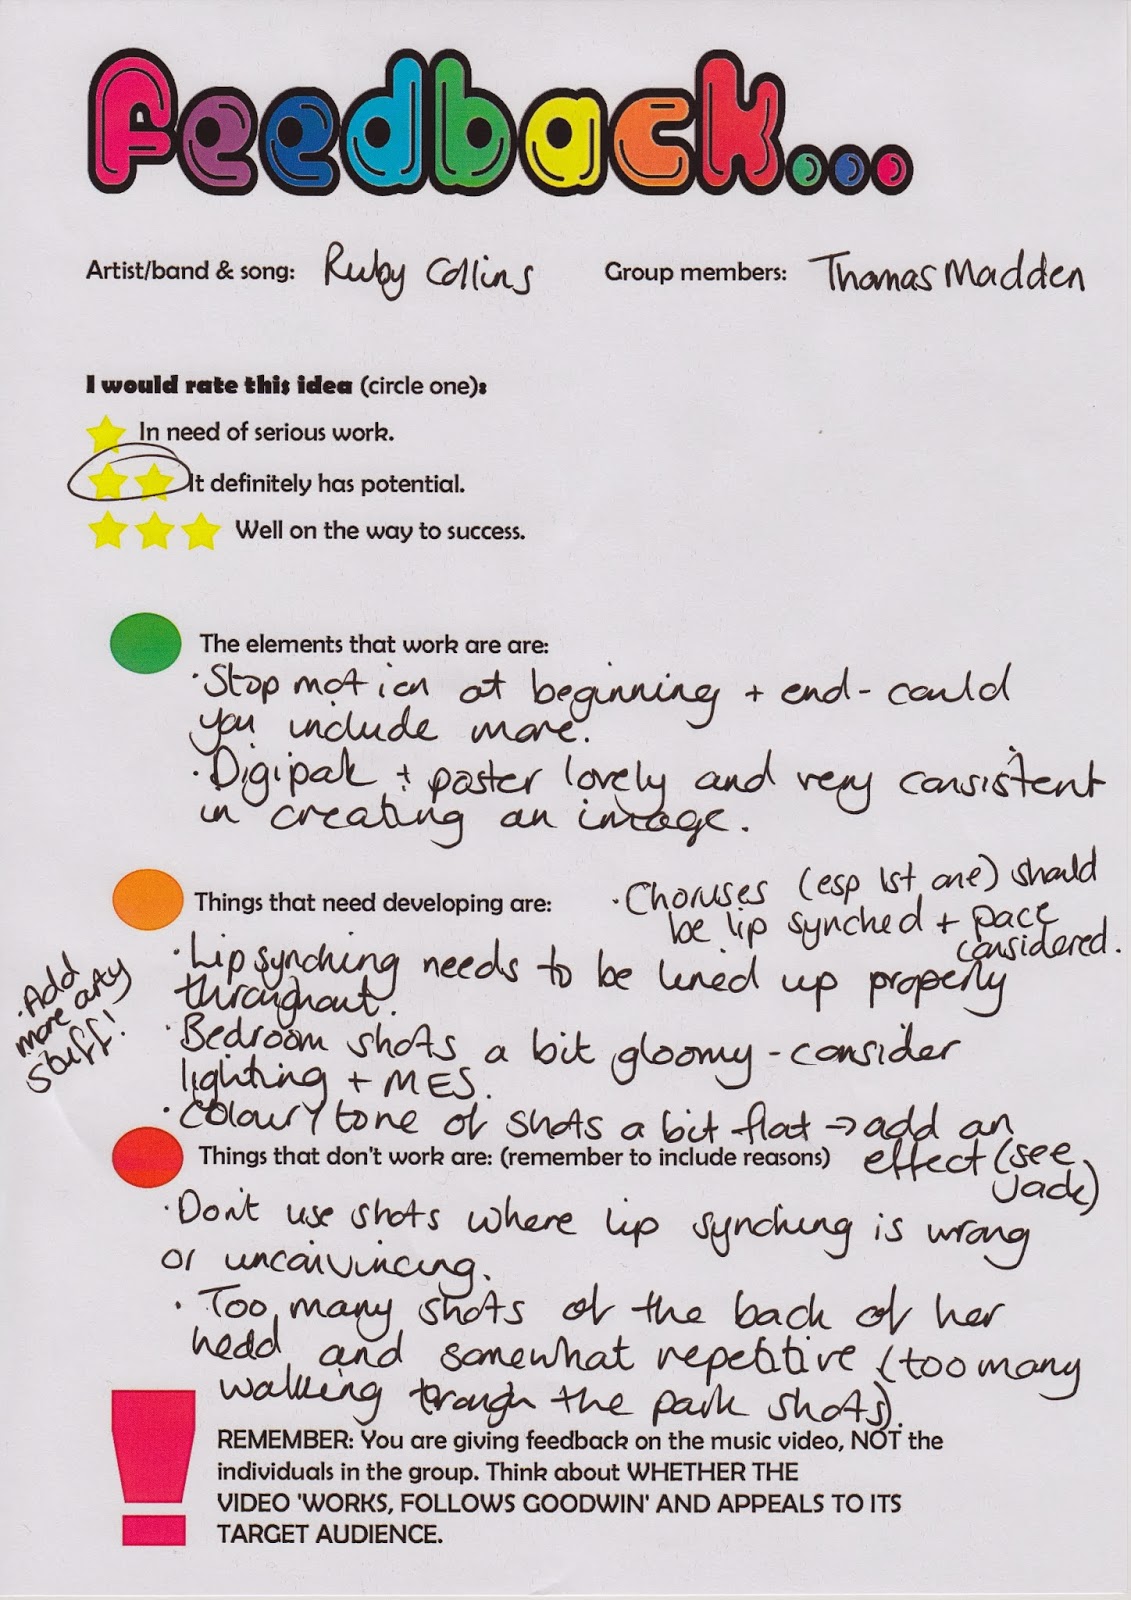 feedback...
Artist/band & song: Ruby Collins Group members: Thomas Madden
I would rate this idea (circle one):
In need of serious work.
It definitely has potential.
Well on the way to success.
The elements that work are are:
·Stop motion at beginning + end - could
you include more.
·Digipak + poster lovely and very consistent
in creating an image.
Things that need developing are:
·Choruses (esp 1st one) should
be lip synched + pace
considered.
·Lip synching needs to be lined up properly
throughout.
·Bedroom shots a bit gloomy - consider
lighting + MES.
·Colour/tone of shots a bit flat → add an
effect (see
Jack)
·Add
more arty
stuff!
Things that don't work are: (remember to include reasons)
·Don't use shots where lip synching is wrong
or unconvincing.
·Too many shots of the back of her
head and somewhat repetitive (too many
walking through the park shots).
REMEMBER: You are giving feedback on the music video, NOT the
individuals in the group. Think about WHETHER THE
VIDEO 'WORKS, FOLLOWS GOODWIN' AND APPEALS TO ITS
TARGET AUDIENCE.